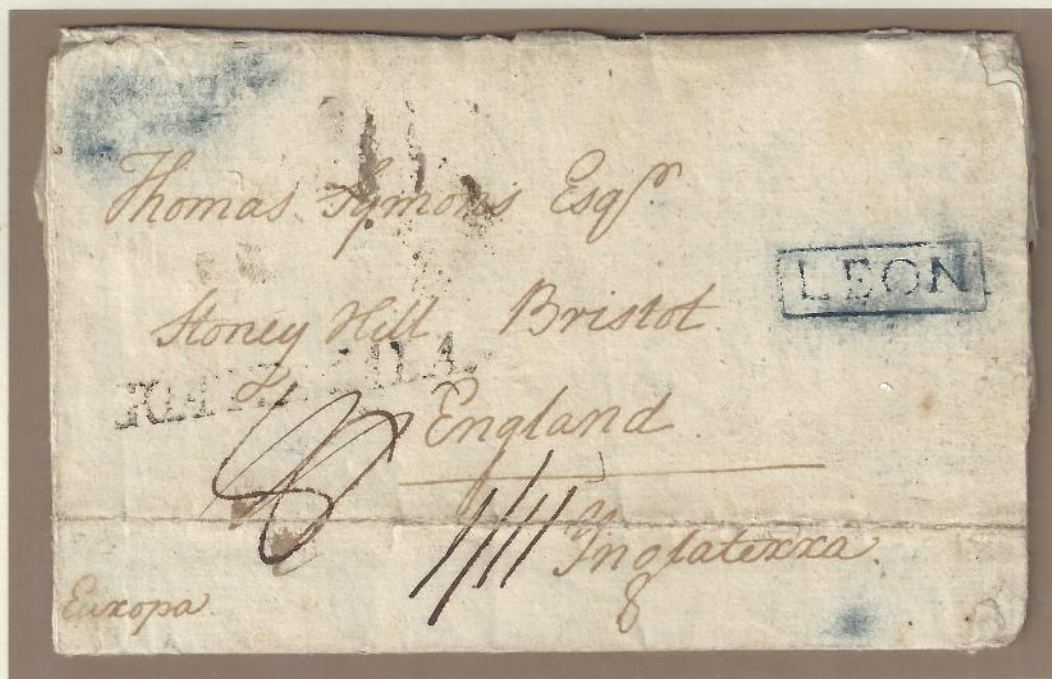 Thomas Symons Esqr.
LEON
Stoney Hill Bristol
England
1/11
Inglaterra
8
Europa